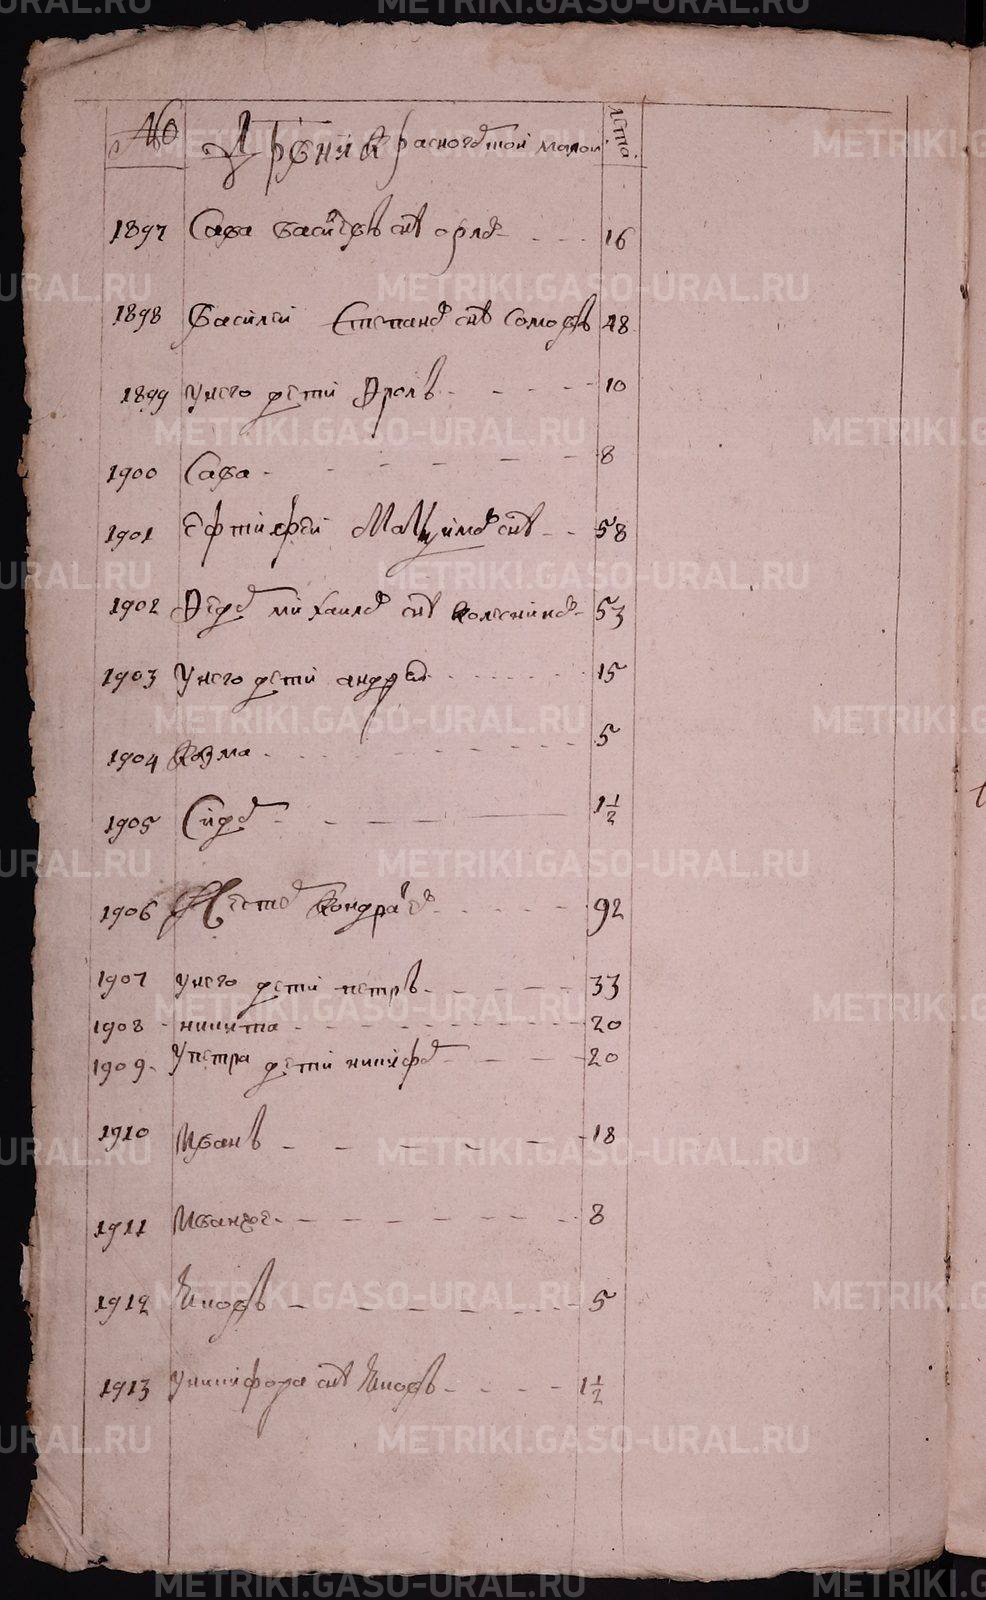 № Дрвни Красногοской малой лета.
1897 Сава васильевъ снъ орлов - - - 16
1898 Василей Степанов снъ Сомовъ 48
1899 у него дети Фролъ - - - 10
1900 Сава - - - 8
1901 Ефтифей Маѯимов снъ - - 58
1902 Федор михаилов снъ колесников - 53
1903 у него дети андрей - - - 15
1904 Козма - - - 5
1905 Сидор - - - 1 1/2
1906 Кондратев - - - 92
1907 у него дети петръ - - - 33
1908 никита - - - 20
1909 у петра дети никифор - - - 20
1910 Иванъ - - - 18
1911 Иван - - - 8
1912 Яковъ - - - 5
1913 у никифора снъ Яковъ - - - 1 1/2
METRIKI.GASO-URAL.RU